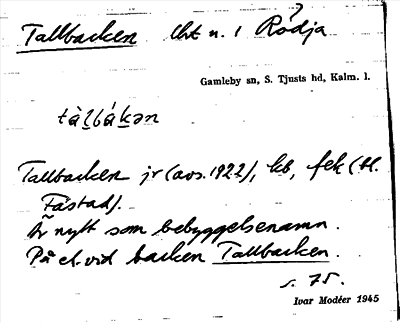 Tallbacken lht u. i Rödja
Gamleby sn, S. Tjusts hd, Kalm. l.
tàl̥bák̥ən
Tallbacken jr (avs. 1922), kb, fek (tl.
Fästad).
Är nytt som bebyggelsenamn.
På el. vid backen Tallbacken.
s. 75.
Ivar Modéer 1945